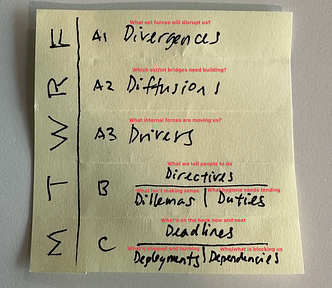 What ext forces will disrupt us?
A1 Divergences
Which ext/int bridges need building?
A2 Diffusions
What internal forces are moving us?
A3 Drivers
What we tell people to do
B Directives
What isn't making sense What hygiene needs tending
Dillemas Duties
What's on the hook now and next
C Deadlines
What's shipped and running Who/what is blocking us
Deployments Dependencies
M T W R F